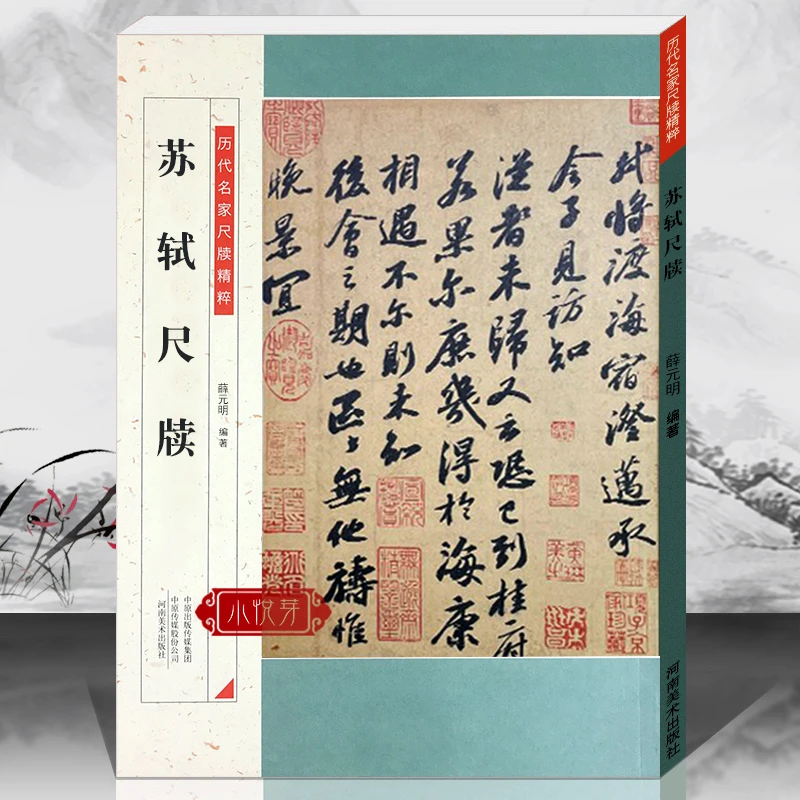 苏轼尺牍
历代名家尺牍精粹
薛元明 编著
中原出版传媒集团
中原传媒股份公司
河南美术出版社
小悦芽
轼将渡海宿澄迈承
令子见访知
从者未归又云恐已到桂府
若果尔庶几得于海康
相遇不尔则未知
後会之期也区区无他祷惟
晚景宜
历代名家尺牍精粹
苏轼尺牍
薛元明 编著
河南美术出版社